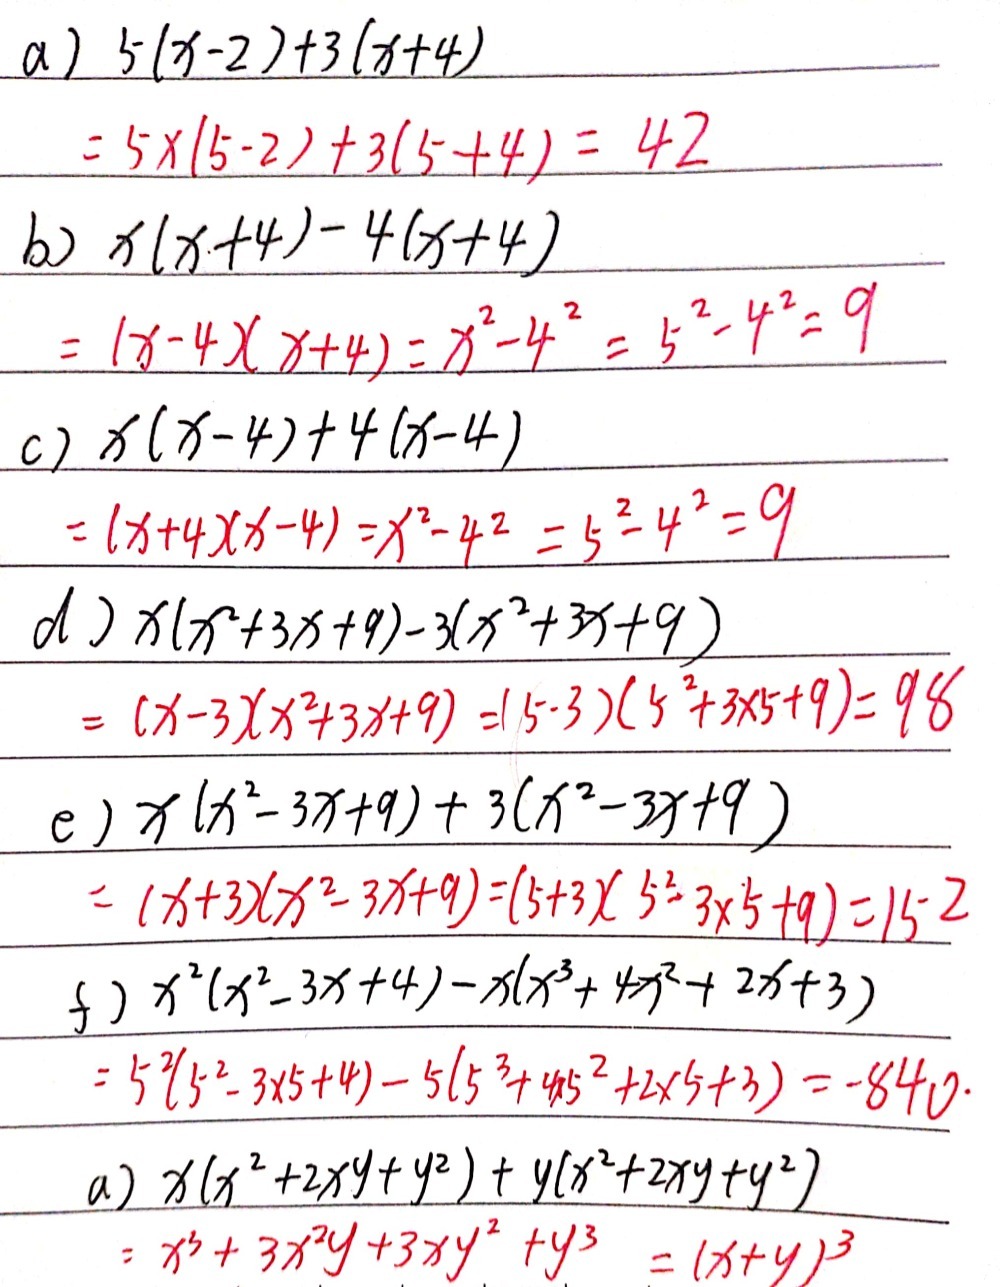 a) 5(x-2)+3(x+4)
= 5×(5-2)+3(5+4) = 42
b) x(x+4)-4(x+4)
= (x-4)(x+4) = x²-4² = 5²-4² = 9
c) x(x-4)+4(x-4)
= (x+4)(x-4) = x²-4² = 5²-4² = 9
d) x(x²+3x+9)-3(x²+3x+9)
= (x-3)(x²+3x+9) = (5-3)(5²+3×5+9) = 98
e) x(x²-3x+9)+3(x²-3x+9)
= (x+3)(x²-3x+9) = (5+3)(5²-3×5+9) = 152
f) x²(x²-3x+4)-x(x³+4x²+2x+3)
= 5²(5²-3×5+4)-5(5³+4×5²+2×5+3) = -840.
a) x(x²+2xy+y²)+y(x²+2xy+y²)
= x³+3x²y+3xy²+y³ = (x+y)³